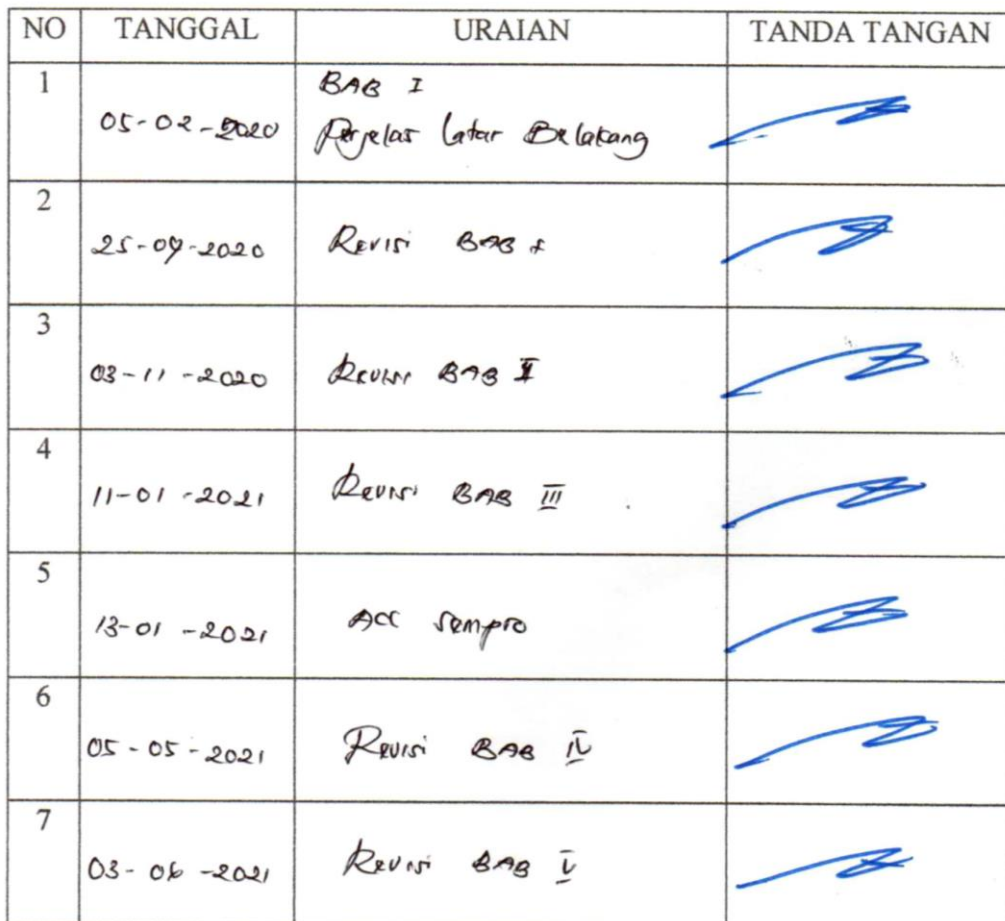 NO TANGGAL URAIAN TANDA TANGAN
1
BAB I
05-02-2020 Perjelas Latar Belakang
2
25-09-2020 Revisi BAB I
3
03-11-2020 Revisi BAB II
4
11-01-2021 Revisi BAB III
5
13-01-2021 ACC Sempro
6
05-05-2021 Revisi BAB IV
7
03-06-2021 Revisi BAB V